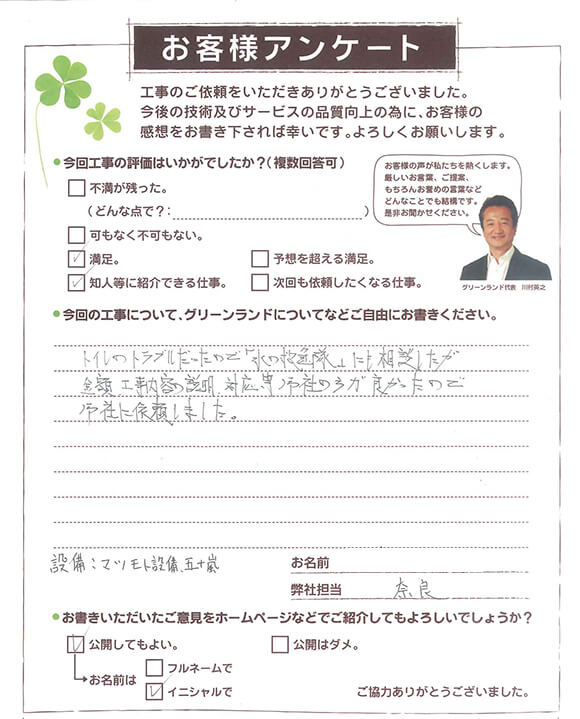 お客様アンケート
工事のご依頼をいただきありがとうございました。
今後の技術及びサービスの品質向上の為に、お客様の
感想をお書き下されば幸いです。よろしくお願いします。
●今回工事の評価はいかがでしたか？（複数回答可）
不満が残った。
（どんな点で？：　　　　　）
可もなく不可もない。
満足。
予想を超える満足。
知人等に紹介できる仕事。
次回も依頼したくなる仕事。
お客様の声が私たちを熱くします。
厳しいお言葉、ご提案、
もちろんお誉めの言葉など
どんなことでも結構です。
是非お聞かせください。
グリーンランド代表　川村英之
●今回の工事について、グリーンランドについてなどご自由にお書きください。
トイレのトラブルだったので「水の救急隊」にも相談したが
金額、工事内容の説明、対応等 弊社の方が良かったので
弊社に依頼しました。
設備：マツモト設備、五十嵐
お名前
弊社担当　奈良
●お書きいただいたご意見をホームページなどでご紹介してもよろしいでしょうか？
公開してもよい。
公開はダメ。
お名前は
フルネームで
イニシャルで
ご協力ありがとうございました。